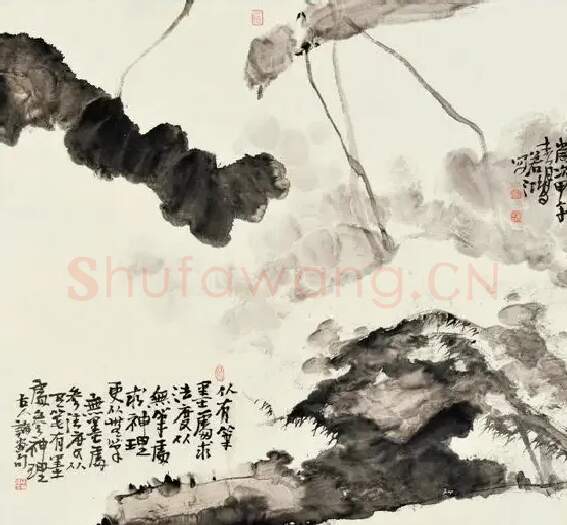 歲次甲午
寫
Shufawang.CN
以有筆
墨處求
法度从
無筆處
求神理
更从無筆
無墨處
參法度
有筆有墨
處參神理
古人論畫句